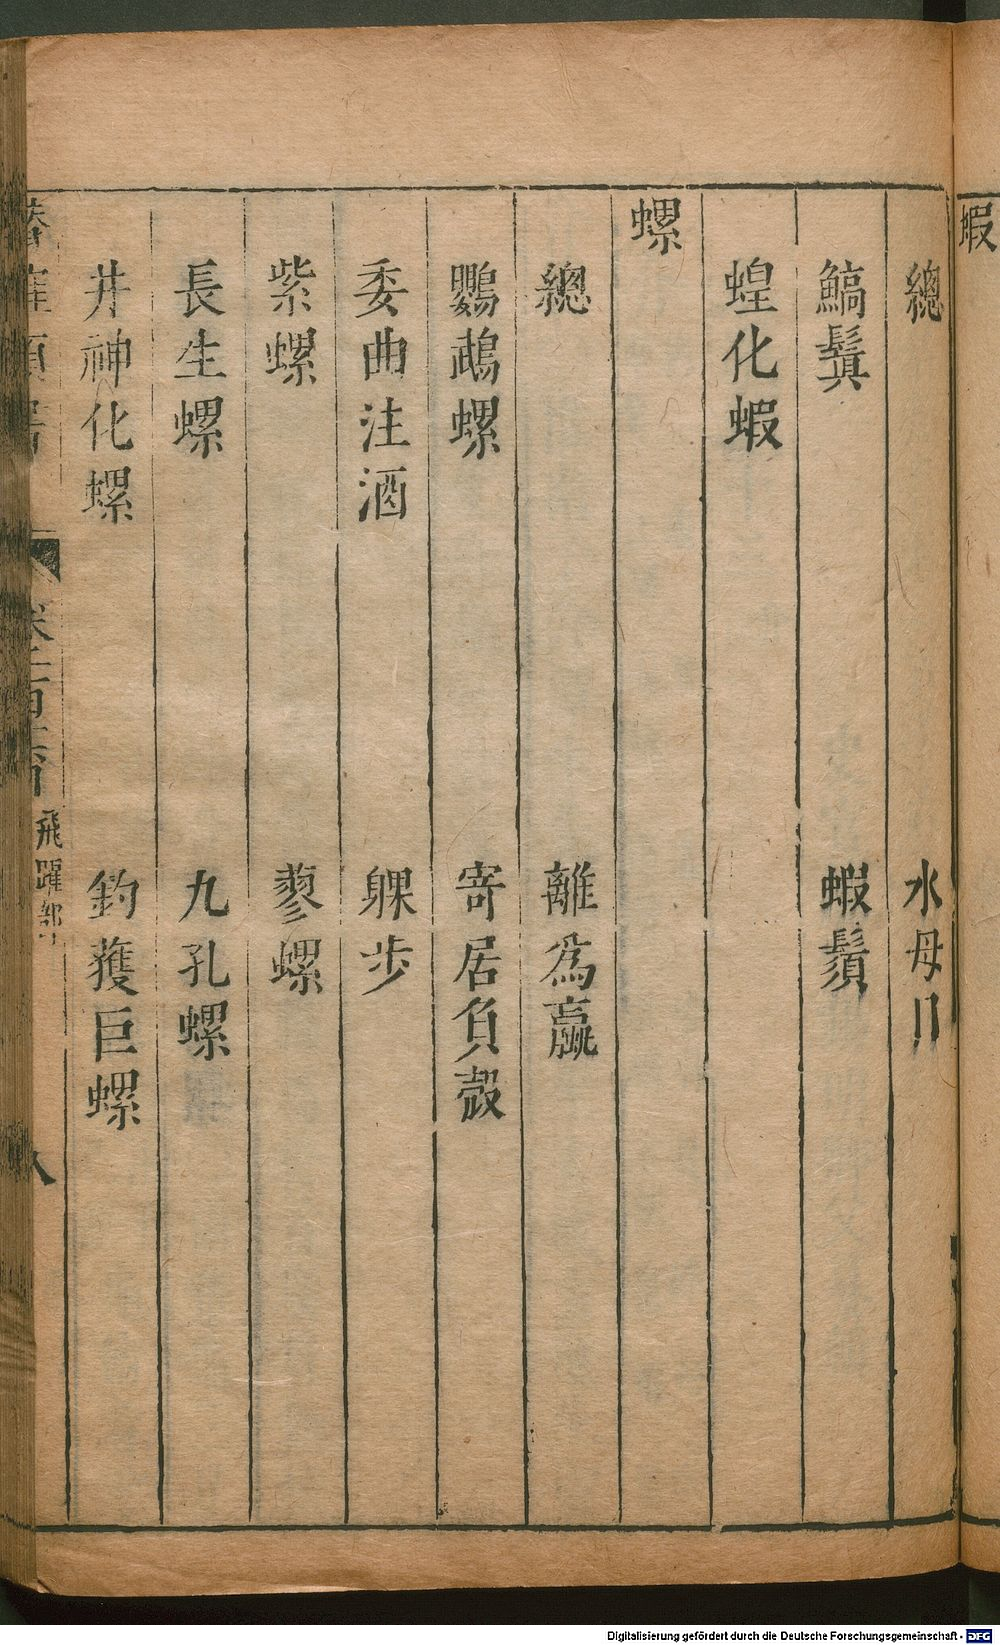 蝦
總 水母目
鰝鬚 蝦鬚
蝗化蝦
螺
總 離為蠃
鸚鵡螺 寄居負殼
委曲注酒 躶步
紫螺 蓼螺
長生螺 九孔螺
井神化螺 釣獲巨螺
飛躍部
八
Digitalisierung gefördert durch die Deutsche Forschungsgemeinschaft - DFG